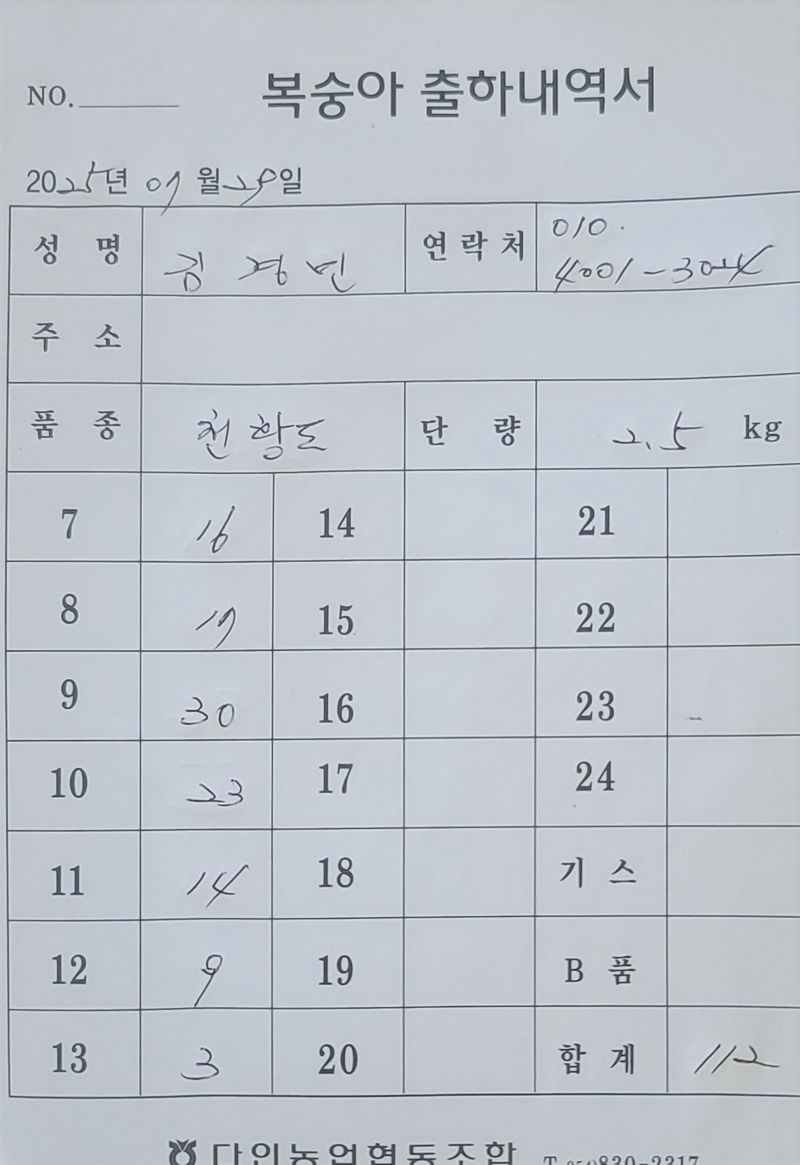 NO.
복숭아 출하내역서
2025년 07월 29일
성 명 김 경 민 연락처 010.
4001-3024
주 소
품 종 천황도 단 량 2.5 kg
7 16 14 21
8 17 15 22
9 30 16 23 -
10 23 17 24
11 14 18 기 스
12 9 19 B 품
13 3 20 합 계 112
다인농업협동조합 T. 054)830-2217